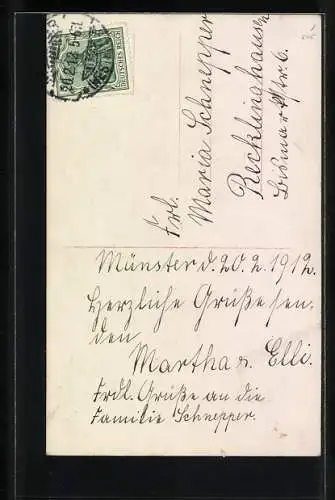 DEUTSCHES REICH
Frl.
Maria Schnepper
Recklinghausen
Bismarkstr. 6.
Münster d. 20. 2. 1912.
Herzliche Grüße sen-
den
Martha u. Elli.
Frdl. Grüße an die
Familie Schnepper.